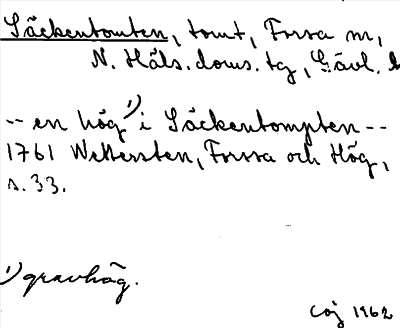 Säckentomten, tomt, Forsa sn,
N. Häls. doms. tg, Gävl. l
-- en hög ¹) i Säckentompten --
1761 Wettersten, Forssa och Hög,
s. 33.
¹) gravhög.
CEJ 1962